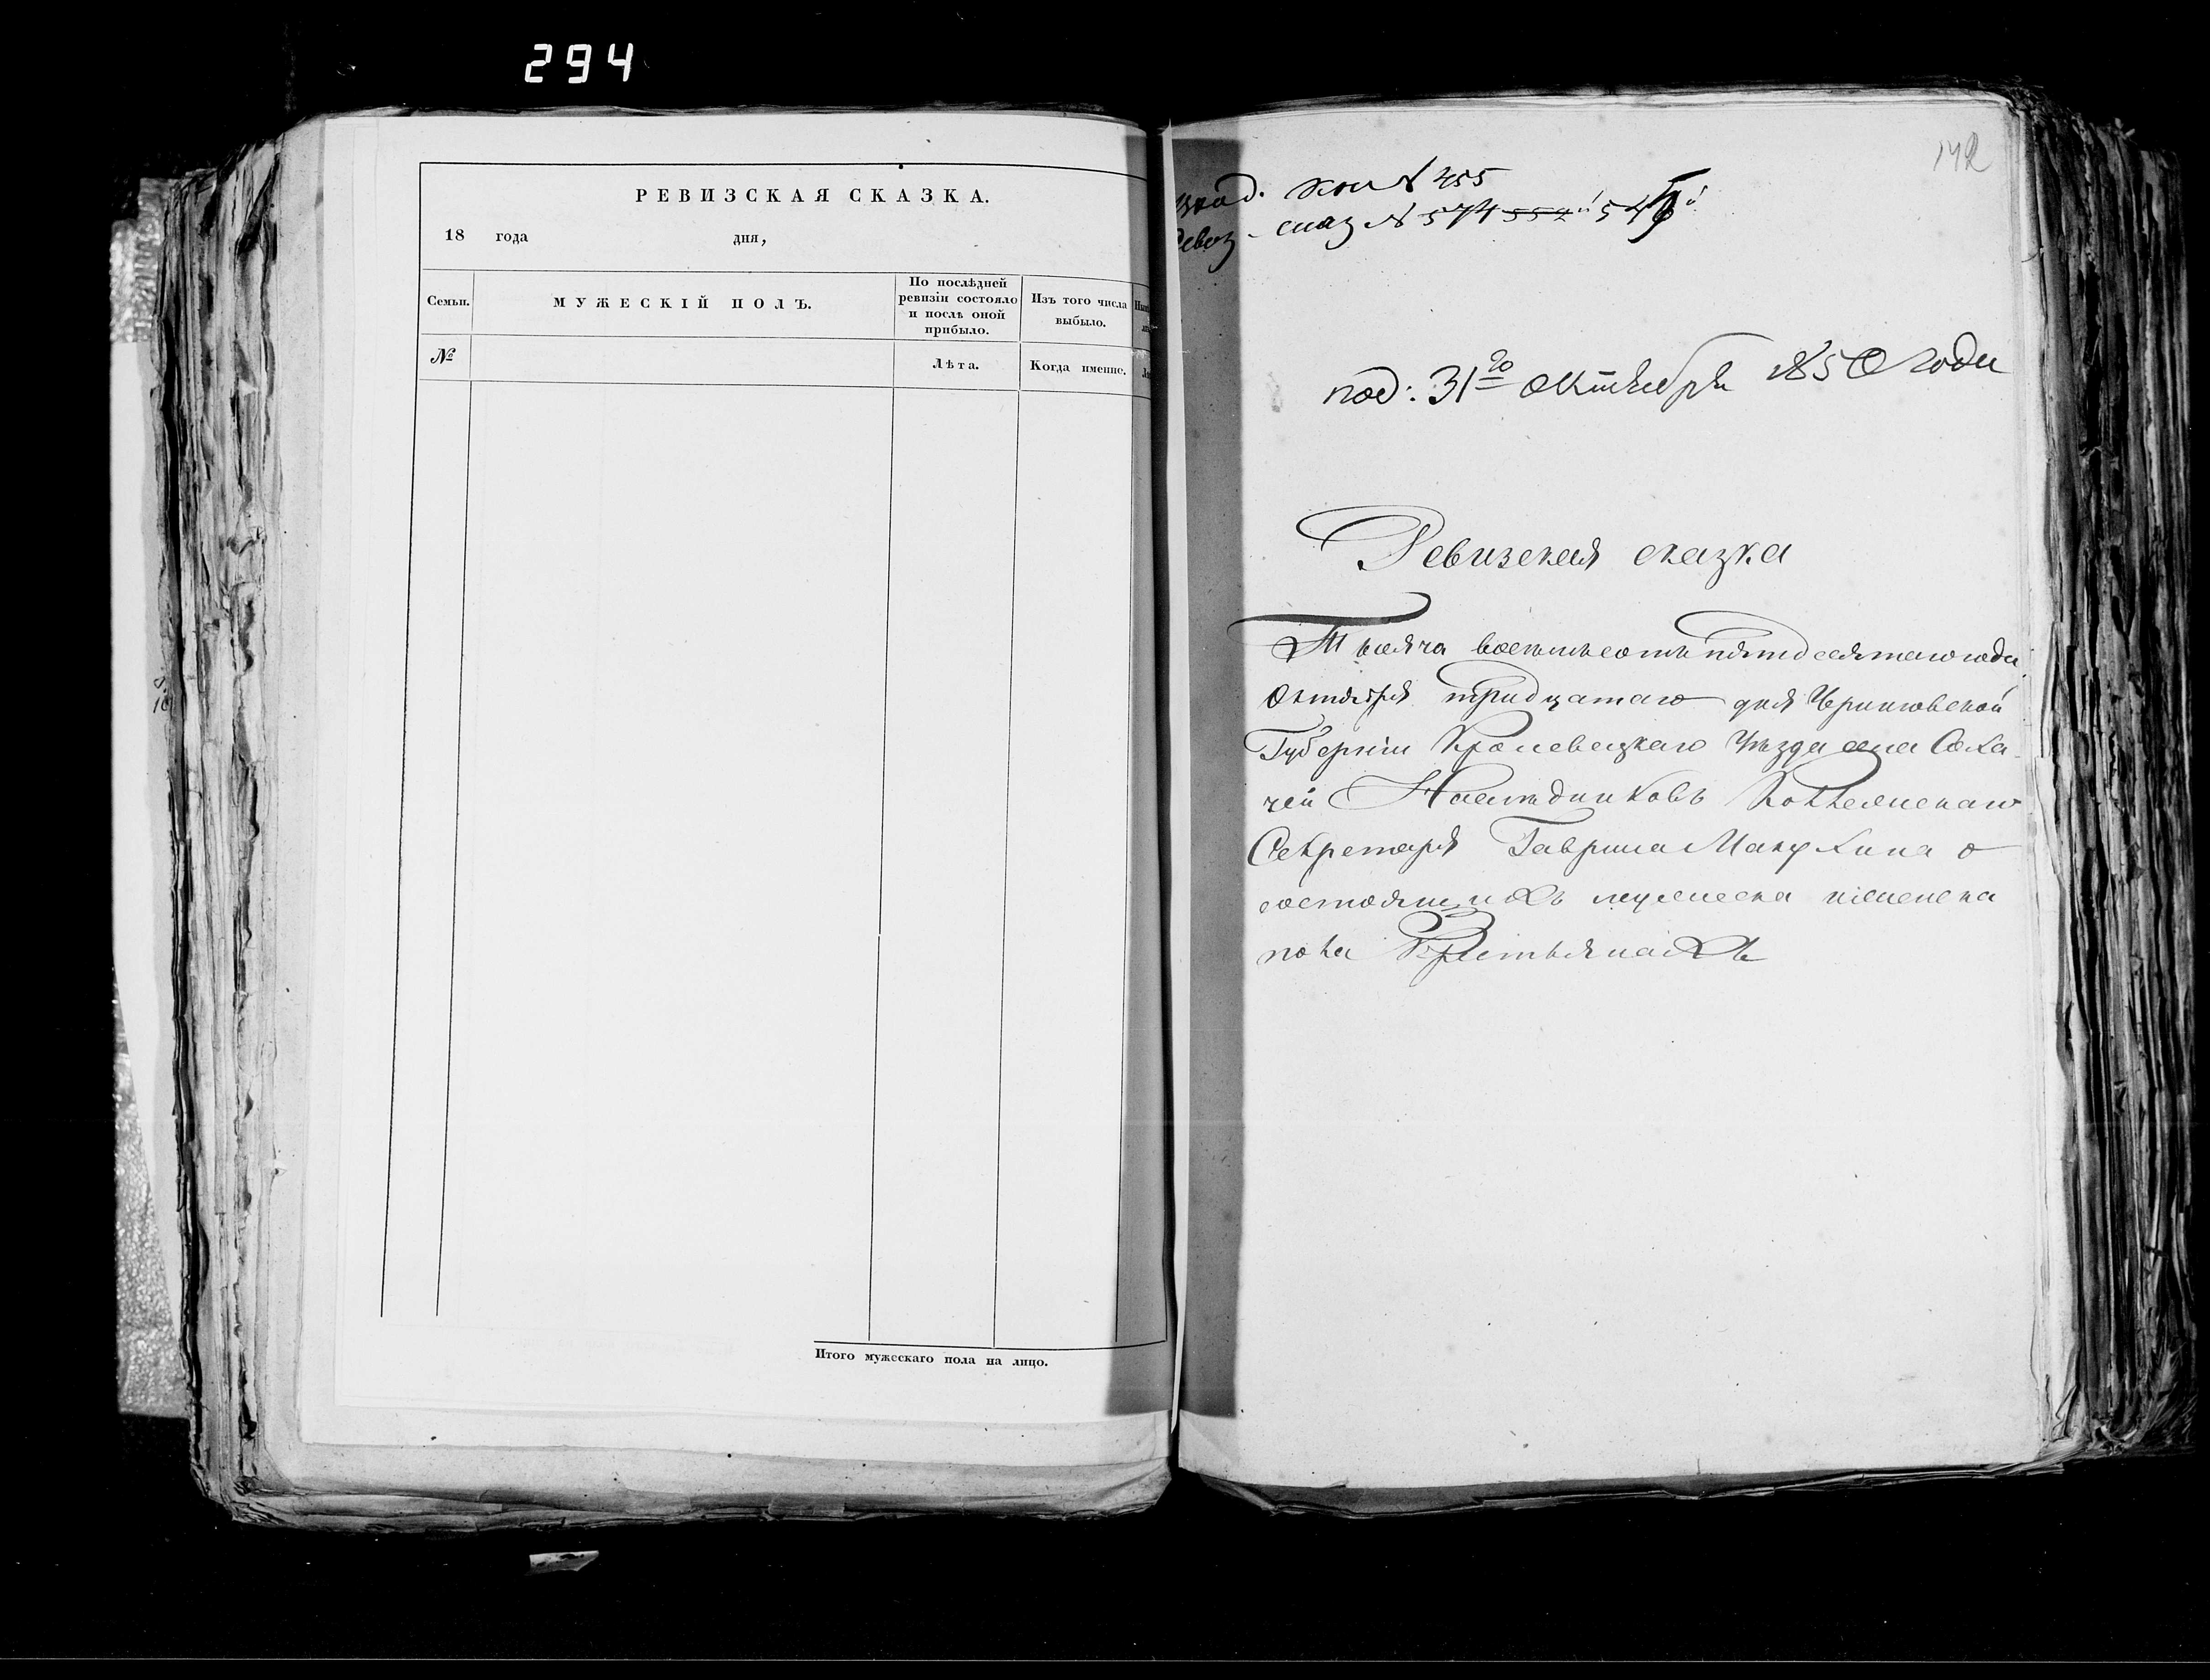 294
РЕВИЗСКАЯ СКАЗКА.
18 года дня,
Семьи.
МУЖЕСКІЙ ПОЛЪ.
По послѣдней ревизіи состояло и послѣ оной прибыло.
Изъ того числа выбыло.
№
Лѣта.
Когда именно.
Итого мужескаго пола на лицо.
142
№ 455
сказ №
под: 31го Октября 1850 года
Ревизская сказка
Тысяча восемьсотъ пятдесятаго года
Октября тридцатаго дня Черниговской
Губерніи Кролевецкаго Уѣзда села Соха-
чей Наслѣдниковъ Коллежскаго
Секретаря Гаврила Манухина о
состоящихъ мужеска иженска
пола Крестьянахъ